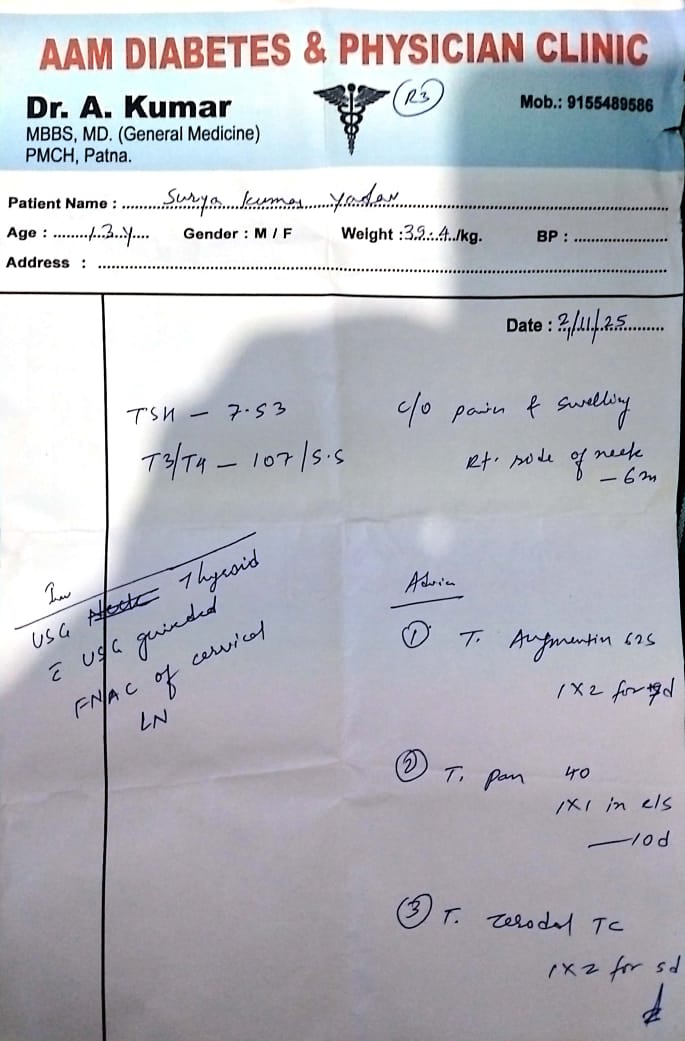 AAM DIABETES & PHYSICIAN CLINIC
Dr. A. Kumar
R3
Mob.: 9155489586
MBBS, MD. (General Medicine)
PMCH, Patna.
Patient Name : Surya kumar yadav
Age : 13 y Gender : M / F Weight : 39.4 /kg. BP :
Address :
Date : 2/11/25
TSH – 7.53
T3/T4 – 107/5.5
c/o pain & swelling
Rt. side of neck
– 6m
Inv
USG Thyroid
c̄ USG guided
FNAC of cervical
LN
Advice
① T. Augmentin 625
1X2 for 7d
② T. Pan 40
1X1 in e/s
— 10d
③ T. Zerodol TC
1X2 for 5d